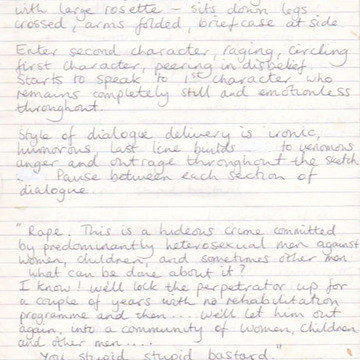 with large rosette - sits down legs
crossed, arms folded, briefcase at side.
Enter second character, raging, circling
first character, peering in disbelief.
Starts to speak to 1st character who
remains completely still and emotionless
throughout.
Style of dialogue delivery is ironic,
humorous, last line builds to venomous
anger and outrage throughout the sketch
Pause between each section of
dialogue.
"Rape. This is a hideous crime committed
by predominantly heterosexual men against
women, children, and sometimes other men
what can be done about it?
I know! We'll lock the perpetrator up for
a couple of years with no rehabilitation
programme and then.... we'll let him out
again, into a community of women, children
and other men.....
You stupid, stupid bastard."